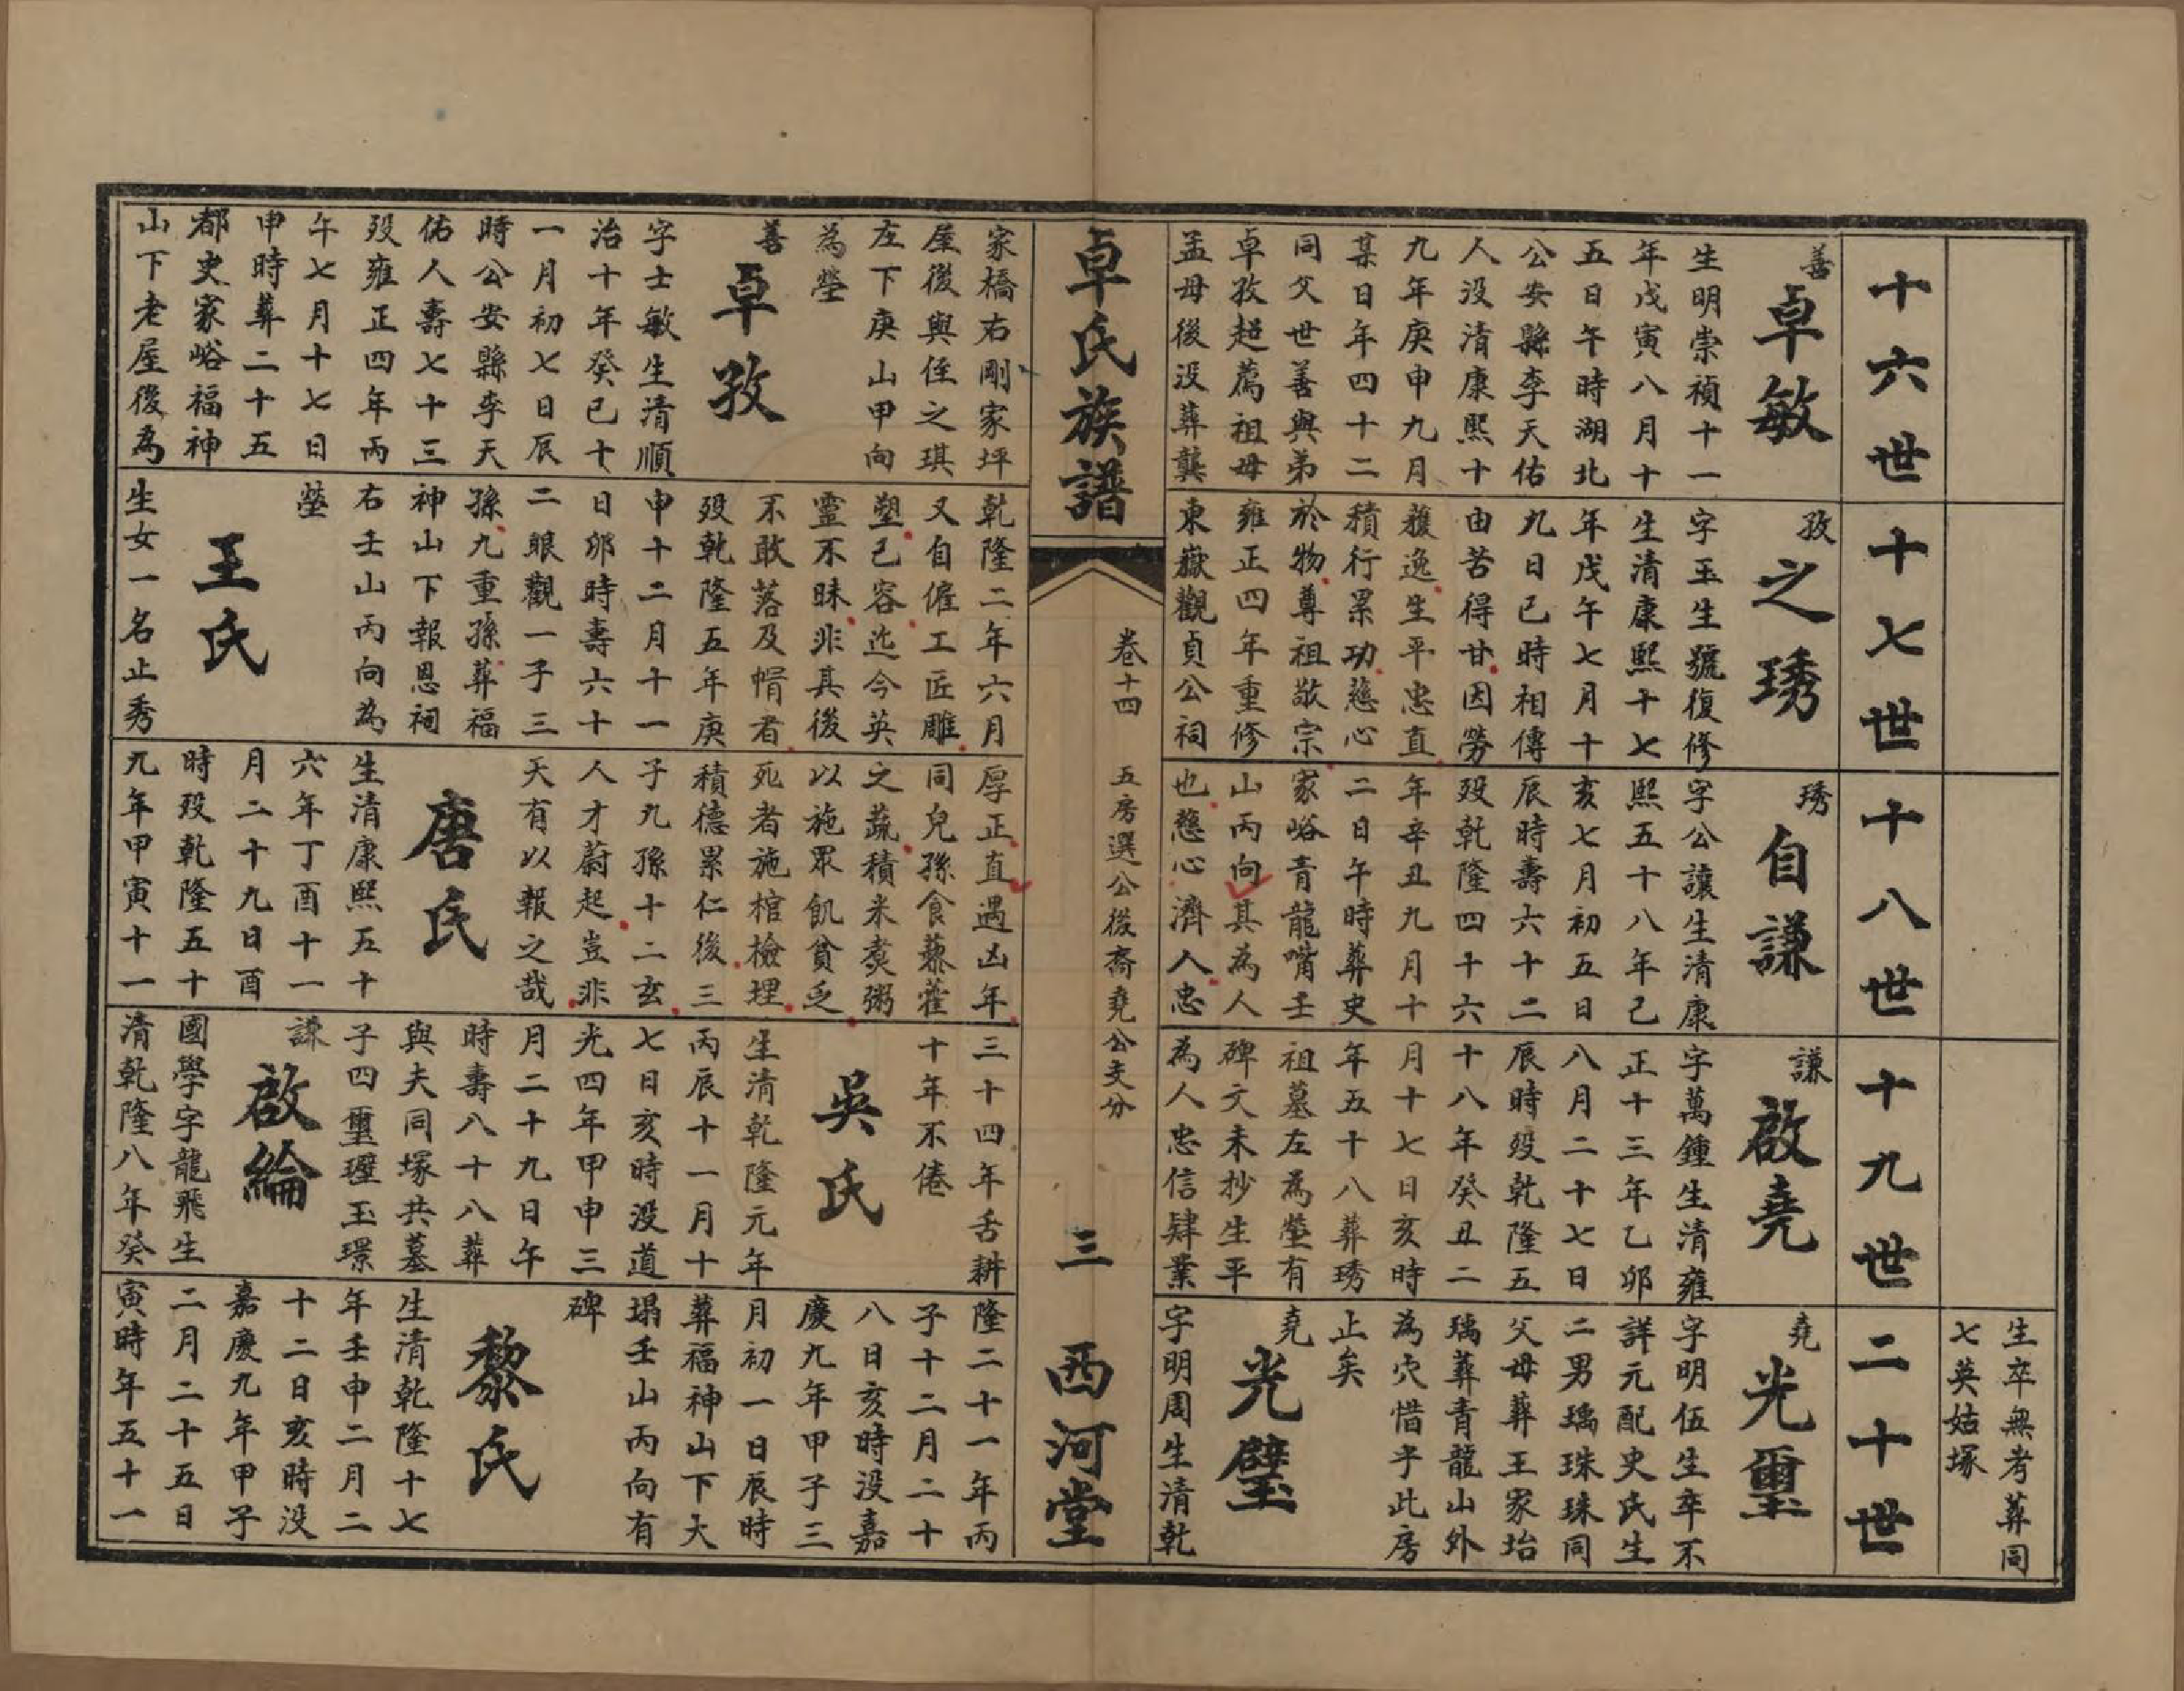 生卒無考葬同
七英姑塚
十六世
善
卓敏
生明崇禎十一
年戊寅八月十
五日午時湖北
公安縣李天佑
人没清康熙十
九年庚申九月
某日年四十二
同父世善與弟
卓孜超薦祖母
孟母後没葬龔
家橋右剛家坪
屋後與侄之琪
左下庚山甲向
為塋
善
卓孜
字士敏生清順
治十年癸已十
一月初七日辰
時公安縣李天
佑人壽七十三
殁雍正四年丙
午七月十七日
申時葬二十五
都史家峪福神
山下老屋後為
十七世
孜
之琇
字玉生號復修
生清康熙十七
年戊午七月十
九日已時相傳
由苦得甘因勞
獲逸生平忠直
積行累功慈心
於物尊祖敬宗
雍正四年重修
東嶽觀貞公祠
乾隆二年六月
又自僱工匠雕
塑己容迄今英
靈不昧非其後
不敢落及帽者
殁乾隆五年庚
申十二月十一
日卯時壽六十
二眼觀一子三
孫九重孫葬福
神山下報恩祠
右壬山丙向為
塋
王氏
生女一名止秀
十八世
琇
自謙
字公讓生清康
熙五十八年己
亥七月初五日
辰時壽六十二
殁乾隆四十六
年辛丑九月十
二日午時葬史
家峪青龍嘴壬
山丙向其為人
也慈心濟人忠
厚正直遇凶年
同兒孫食藜藿
之蔬積米煑粥
以施眾飢貧乏
死者施棺檢埋
積德累仁後三
子九孫十二玄
人才蔚起豈非
天有以報之哉
唐氏
生清康熙五十
六年丁酉十一
月二十九日酉
時殁乾隆五十
九年甲寅十一
十九世
謙
啟堯
字萬鍾生清雍
正十三年乙卯
八月二十七日
辰時殁乾隆五
十八年癸丑二
月十七日亥時
年五十八葬琇
祖墓左為塋有
碑文未抄生平
為人忠信肄業
三十四年舌耕
十年不倦
吳氏
生清乾隆元年
丙辰十一月十
七日亥時没道
光四年甲申三
月二十九日午
時壽八十八葬
與夫同塚共墓
子四璽璧玉璟
謙
啟綸
國學字龍飛生
清乾隆八年癸
二十世
堯
光璽
字明伍生卒不
詳元配史氏生
二男瑀珠珠同
父母葬王家坮
瑀葬青龍山外
為穴惜乎此房
止矣
堯
光璧
字明周生清乾
隆二十一年丙
子十二月二十
八日亥時没嘉
慶九年甲子三
月初一日辰時
葬福神山下大
塌壬山丙向有
碑
黎氏
生清乾隆十七
年壬申二月二
十二日亥時没
嘉慶九年甲子
二月二十五日
寅時年五十一
卓氏族譜
卷十四
五房選公後裔堯公支分
三
西河堂